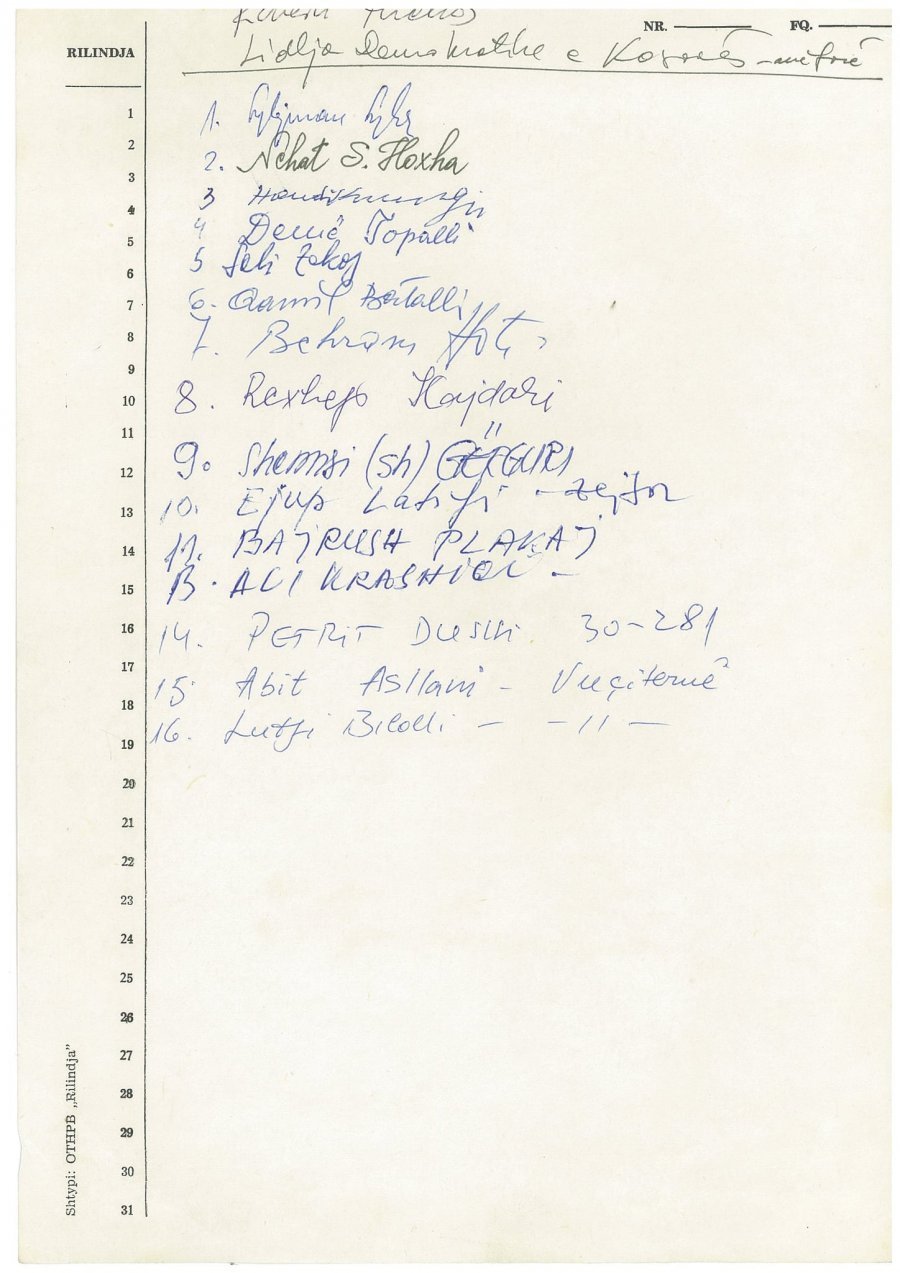 NR. FQ.
RILINDJA
Lidhja Demokratike e Kosovës
1. Sylejman
2. Nehat S. Hoxha
3
4 Demë Topalli
5
6. Qamil Batalli
7. Behram Hoti
8. Rexhep Hajdari
9. Shemsi (sh) GËRGURI
10. Ejup Latifi
11. BAJRUSH PLAKAJ
13. ALI KRASHIQI -
14. PETRIT 30-281
15. Abit Asllani - Vuçiternë
16. Lutfi - -11-
1
2
3
4
5
6
7
8
9
10
11
12
13
14
15
16
17
18
19
20
21
22
23
24
25
26
27
28
29
30
31
Shtypi: OTHPB „Rilindja”